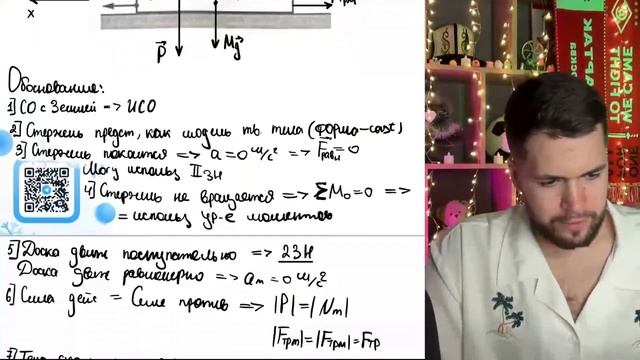 x
P
Mg
Обоснование:
1] СО с Землёй => ИСО
2] Стержень предст, как модель тв. тела (форма-const)
3] Стержень покоится => a=0 м/с² => Fравн=0
Могу использ II ЗН
4] Стержень не вращается => ΣMo=0 =>
= использ ур-е моментов
5] Доска движ поступательно => 2ЗН
Доска движ равномерно => am=0 м/с²
6] Сила дейс = Силе против => |P|=|Nm|
|Fтрm|=|Fтрм|=Fтр
МОСКВА
СПАРТАК
TO FIGHT
WE CAME